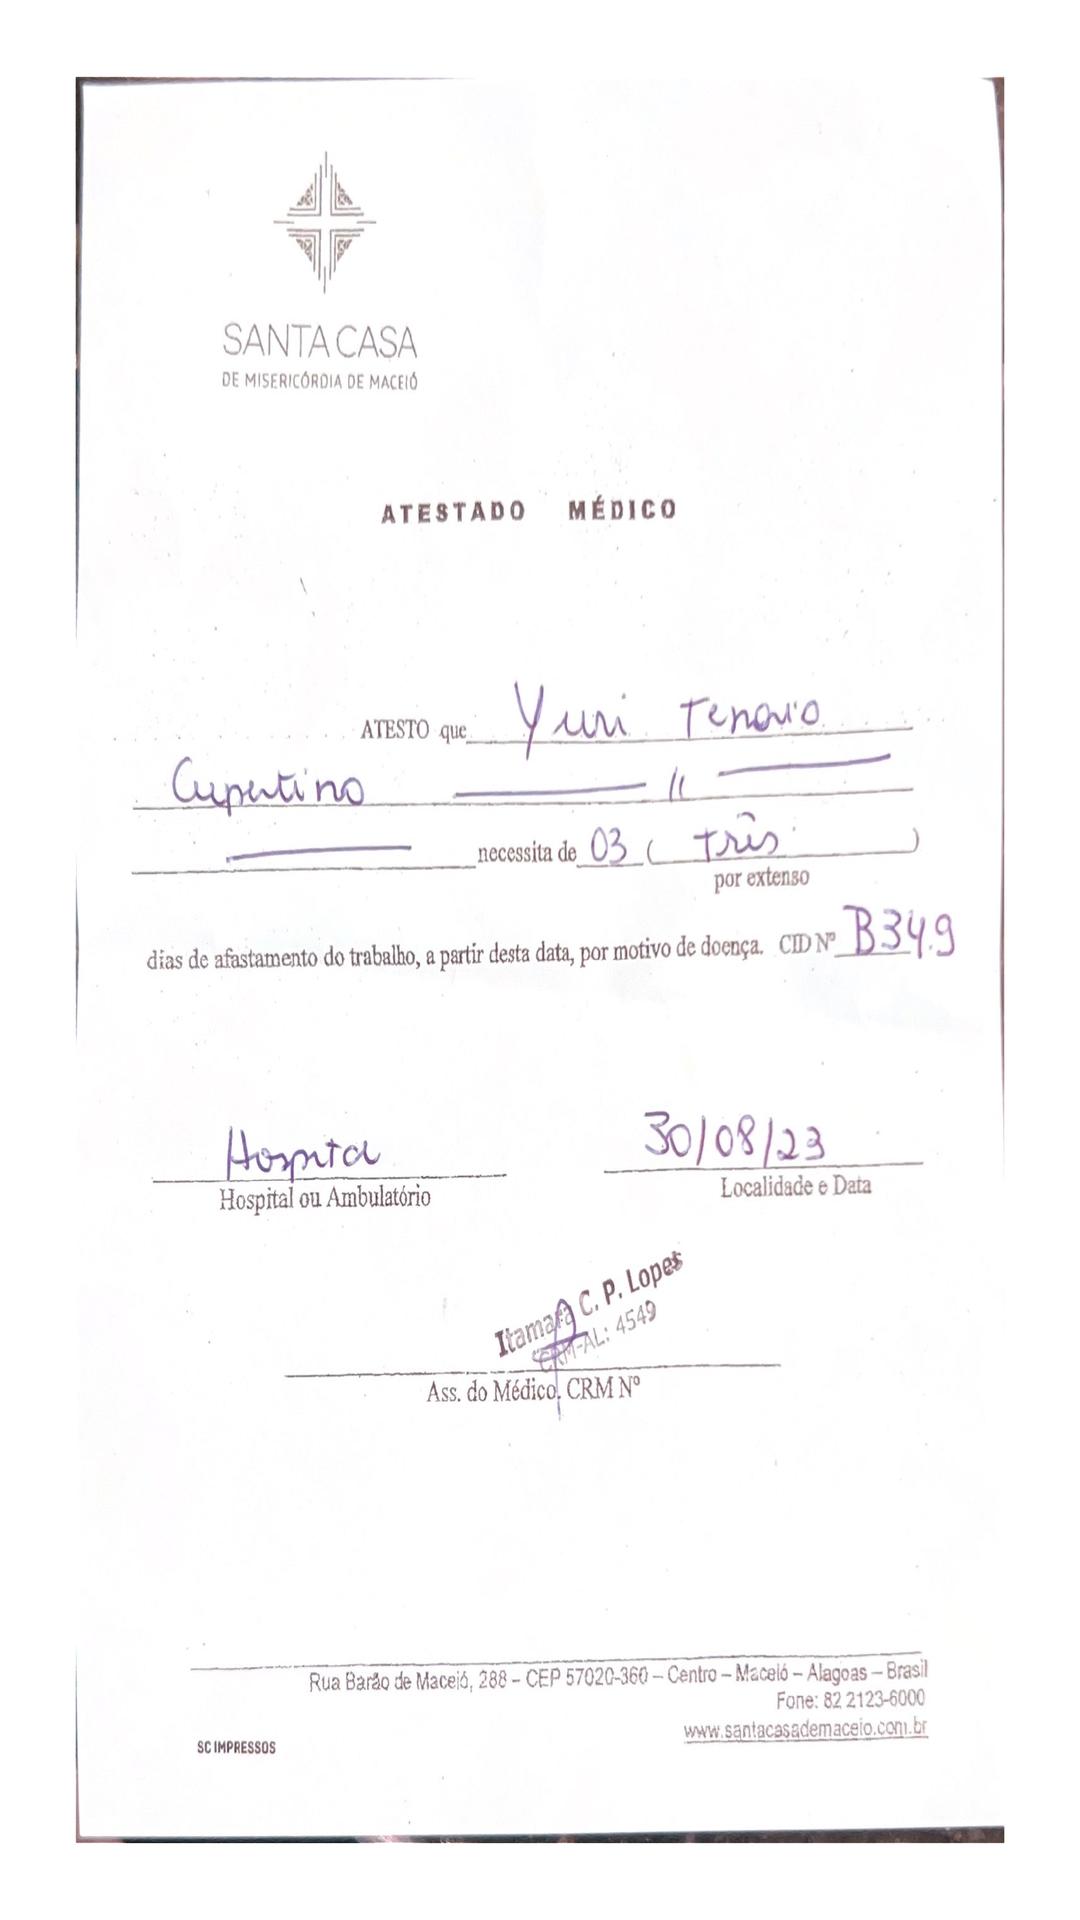 SANTA CASA
DE MISERICÓRDIA DE MACEIÓ
ATESTADO MÉDICO
ATESTO que Yuri Tenorio
Cupertino //
necessita de 03 ( três )
por extenso
dias de afastamento do trabalho, a partir desta data, por motivo de doença. CID Nº B34.9
Hospital 30/08/23
Hospital ou Ambulatório Localidade e Data
Itamara C. P. Lopes
CRM-AL: 4549
Ass. do Médico, CRM Nº
Rua Barão de Maceió, 288 – CEP 57020-360 – Centro – Maceió – Alagoas – Brasil
Fone: 82 2123-6000
www.santacasademaceio.com.br
SC IMPRESSOS